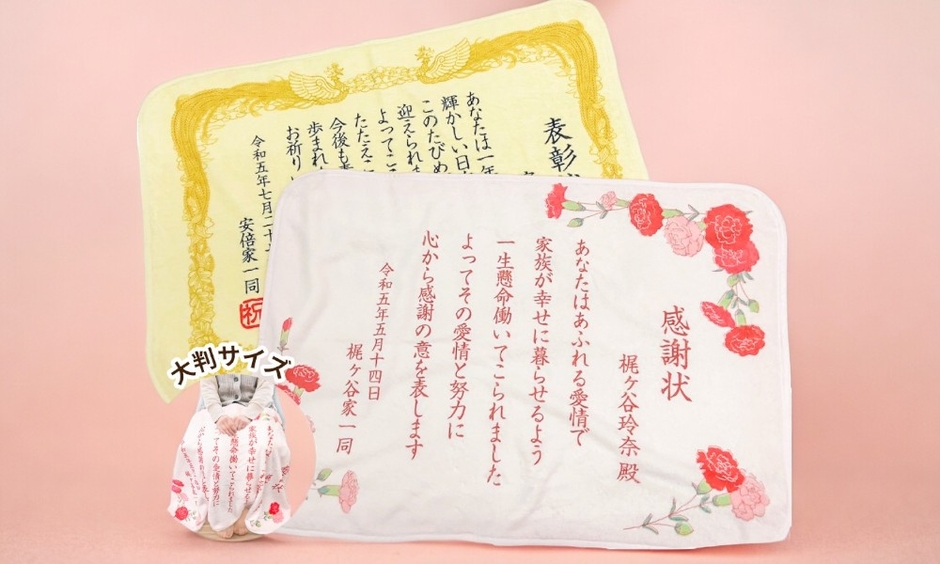 感謝状
梶ヶ谷玲奈 殿
あなたはあふれる愛情で
家族が幸せに暮らせるよう
一生懸命働いてこられました
よってその愛情と努力に
心から感謝の意を表します
令和五年五月十四日
梶ヶ谷家一同
表彰
あなたは一年
輝かしい日
このたびめ
迎えられ
よってこ
たたえこ
今後も
歩まれ
お祈り
令和五年七月二十
安倍家一同
祝
大判サイズ
家族が幸せに暮らせるよう
懸命働いてこられました
てその愛情と努力に